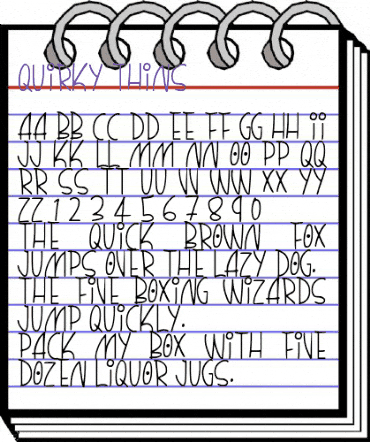 QUiRKY THiNS
AA BB CC DD EE FF GG HH ii
JJ KK LL MM NN OO PP QQ
RR SS TT UU VV WW XX YY
ZZ 1 2 3 4 5 6 7 8 9 0
THE QUiCK BROWN FOX
JUMPS OVER THE LAZY DOG.
THE FiVE BOXiNG WiZARDS
JUMP QUiCKLY.
PACK MY BOX WiTH FiVE
DOZEN LiQUOR JUGS.